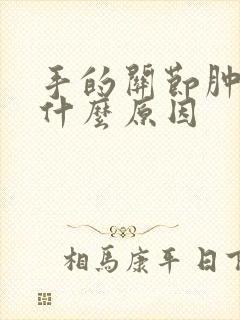 手的關節肿
什麼原因
相馬康平 日下